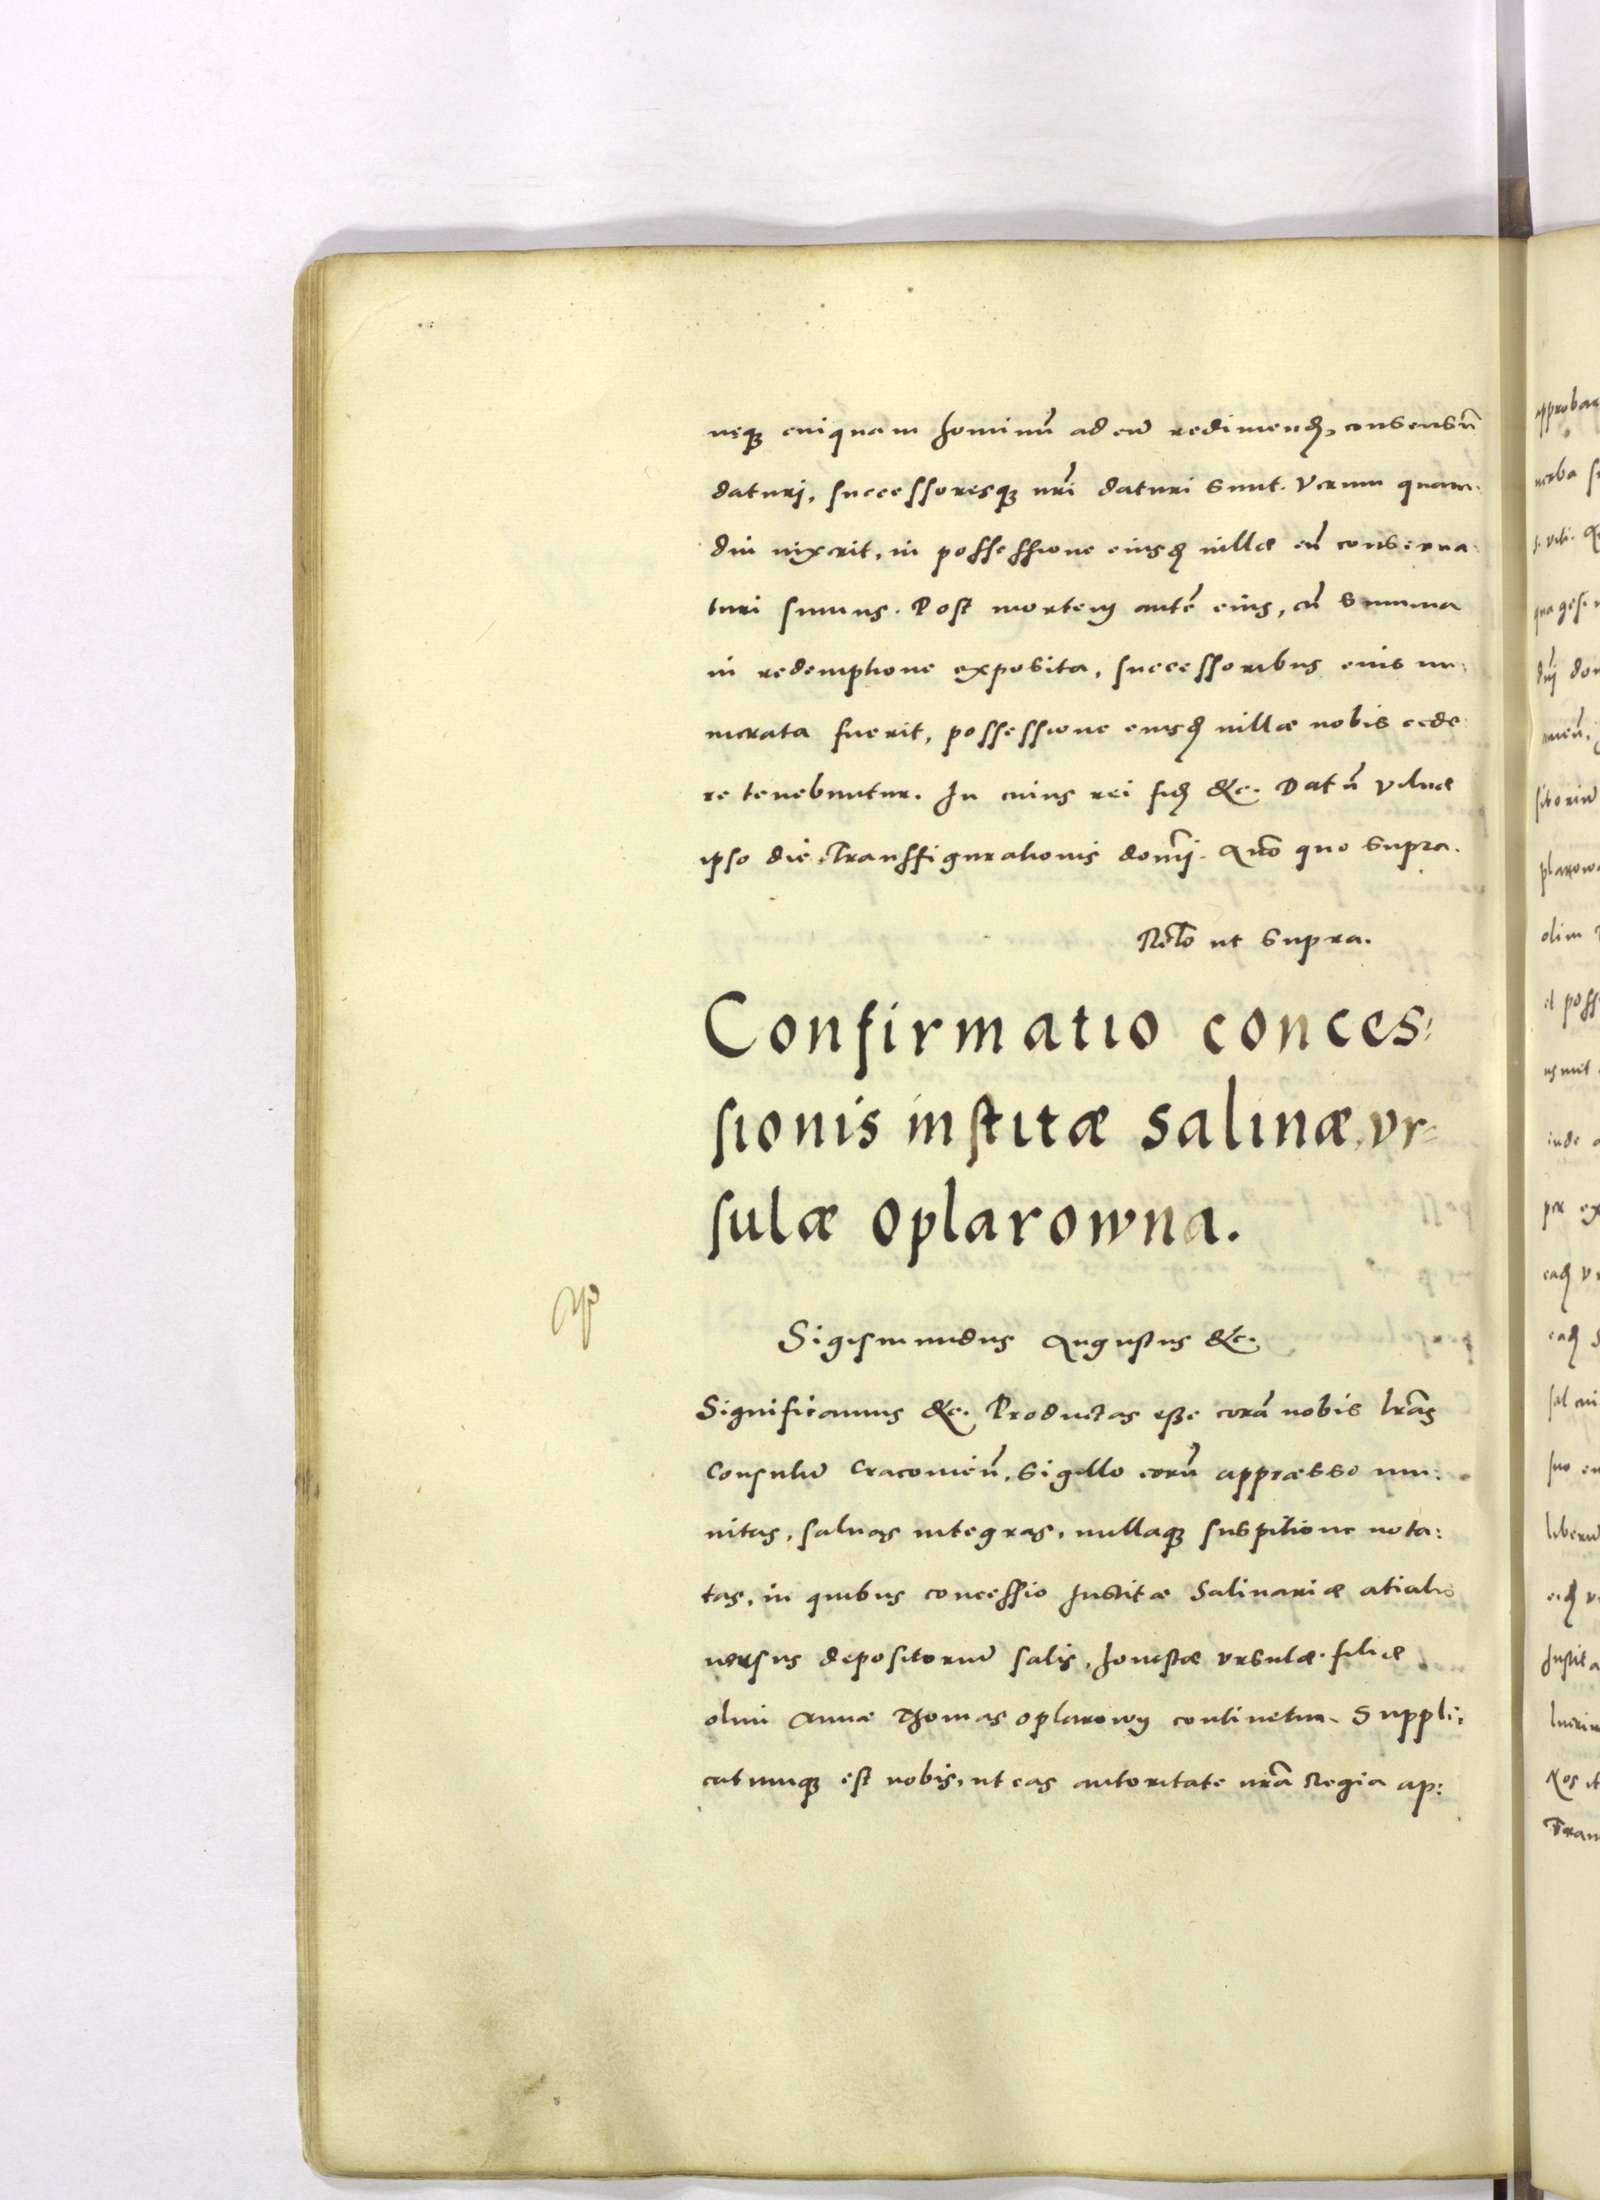 neq3 cuiquam hominū ad eū redimendȩ, consensū
daturj, successoresq3 nr̄i daturi sunt. Verum quam.
diu vixerit, in possessione eiusdȩ villæ eū conserua.
turi sumus. Post mortem autē eius, cū summa
in redemptione exposita, successoribus eius nu:
merata fuerit, possessione eiusdȩ villæ nobis cede:
re tenebuntur. In cuius rei fidȩ &c. Datū Vilnæ
ipso die Transfigurationis domīj. Anō quo supra.
Relō ut supra.
Confirmatio conces:
sionis institæ salinæ, vr=
sulæ Oplarowna.
Sigismundus Augustus &c.
Significamus &c. Productas esse corā nobis lr̄as
Consulū Cracovieñ, sigillo eorū appræsso mu:
nitas, saluas integras, nullaq3 suspitione nota:
tas, in quibus concessio Institæ Salinariæ
versus depositoriū salis, honestæ Vrsulæ filiæ
olim Annæ Thomas Oplarowy continetur. Suppli:
catumq3 est nobis, ut eas autoritate nr̄a Regia ap: